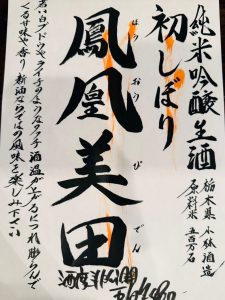 純米吟醸生酒
初しぼり
栃木県 小林酒造
原料米 五百万石
鳳凰美田
ほうおうびでん
若い白ブドウやライチのようなタッチ 酒温が上がるにつれ膨らんで
くる甘味や香り 新酒ならではの風味を楽しみ下さい
酒度